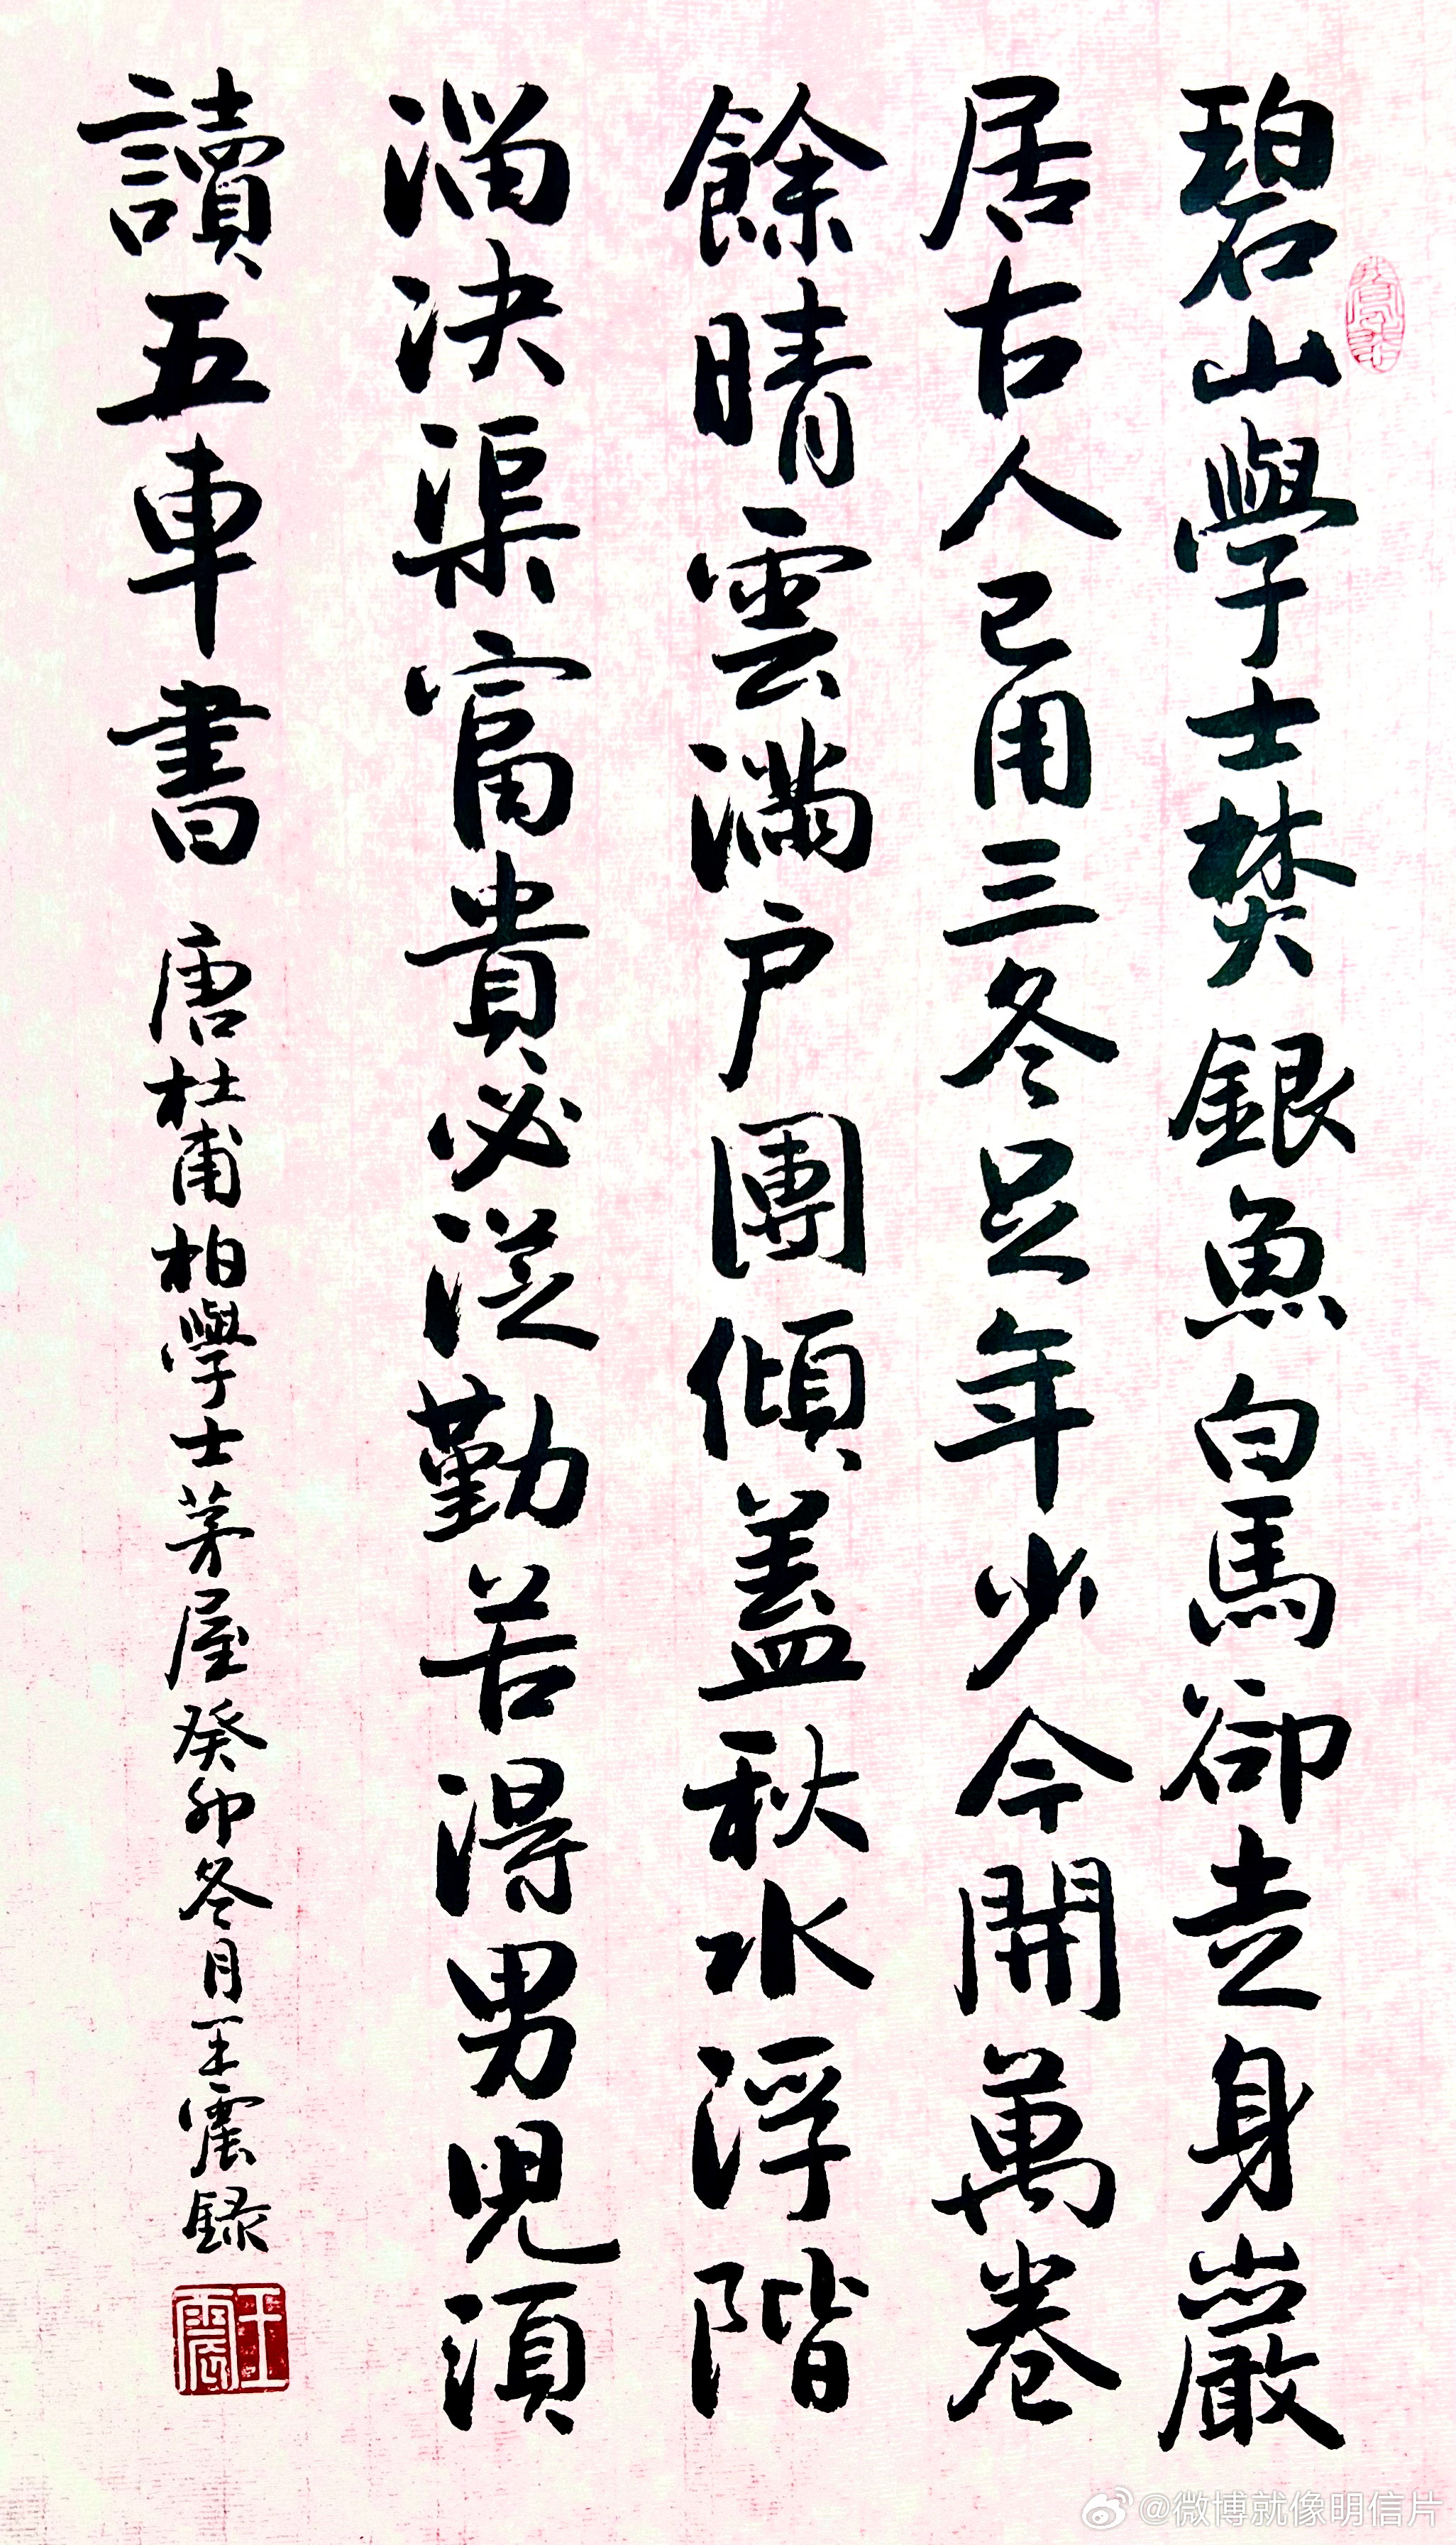 碧山學士焚銀魚白馬卻走身巖
居古人已用三冬足年少今開萬卷
餘晴雲滿户團傾蓋秋水浮階
溜決渠富貴必從勤苦得男兒須
讀五車書
唐杜甫柏學士茅屋癸卯冬月王震錄
王震
@微博就像明信片